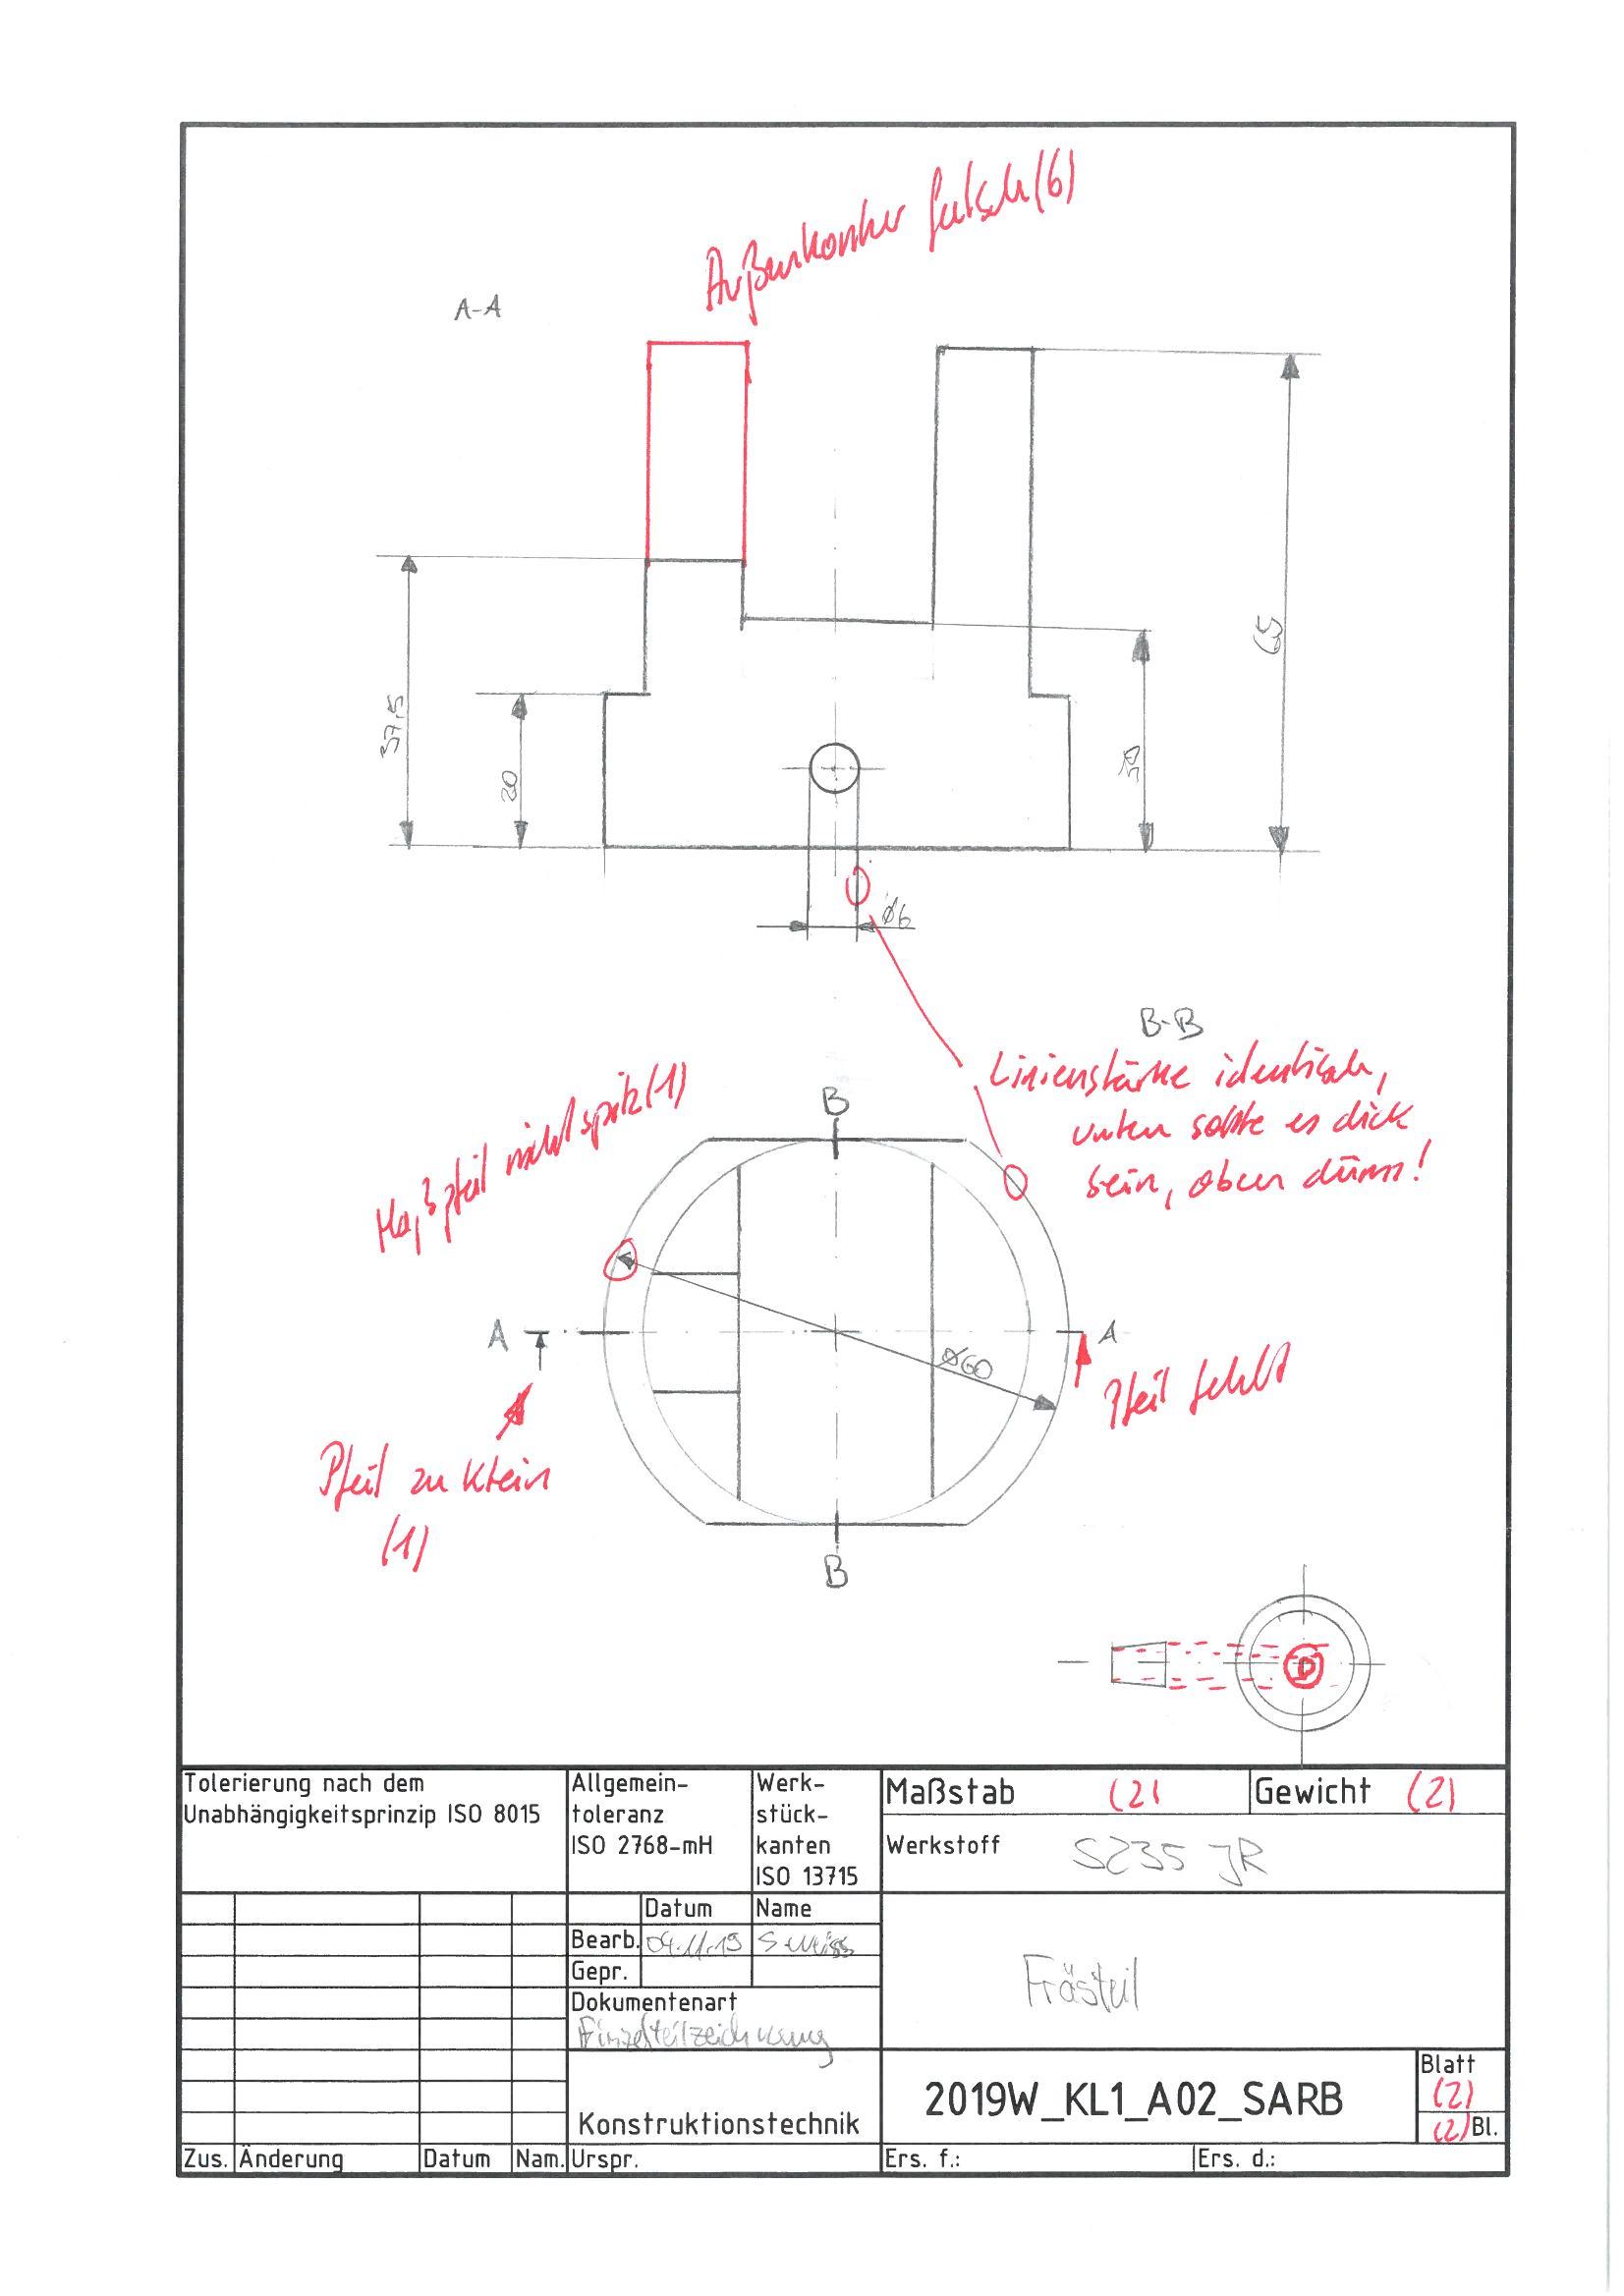 Außenkontur falsch (6)
A-A
65
37,5
20
30
ø6
B-B
Linienstärke identisch,
unten sollte es dick
sein, oben dünn!
Maßpfeil nicht spitz (1)
B
A
A
ø60
Pfeil fehlt
Pfeil zu klein
(1)
B
Tolerierung nach dem
Unabhängigkeitsprinzip ISO 8015
Allgemein-
toleranz
ISO 2768-mH
Werk-
stück-
kanten
ISO 13715
Maßstab (2)
Gewicht (2)
Werkstoff S235 JR
Datum Name
Bearb. 04.11.19 S.Weiss
Gepr.
Dokumentenart
Einzelteilzeichnung
Frästeil
Konstruktionstechnik
2019W_KL1_A02_SARB
Blatt
(2)
(2) Bl.
Zus. Änderung Datum Nam. Urspr. Ers. f.: Ers. d.: